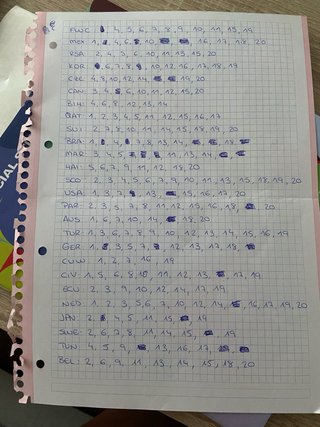 FWC: 4, 5, 6, 7, 8, 9, 10, 11, 15, 19
MEX: 1, 4, 6, 10, 16, 17, 18, 20
RSA: 2, 3, 6, 10, 11, 13, 15, 20
KOR: 6, 7, 8, 10, 12, 16, 17, 18, 19
CZE: 4, 8, 10, 12, 14, 19, 20
CAN: 3, 4, 6, 10, 11, 12, 15, 20
BIH: 4, 6, 8, 12, 13, 14
QAT: 1, 2, 3, 4, 5, 11, 12, 15, 16, 17
SUI: 2, 7, 8, 10, 11, 14, 15, 18, 19, 20
BRA: 1, 4, 7, 8, 13, 14, 18
MAR: 3, 4, 5, 11, 13, 14
HAI: 5, 6, 7, 9, 11, 12, 18, 20
SCO: 2, 3, 4, 5, 6, 7, 9, 10, 11, 13, 15, 18, 19, 20
USA: 1, 3, 7, 13, 15, 16, 17, 20
PAR: 2, 3, 5, 7, 8, 12, 15, 16, 18, 20
AUS: 1, 6, 7, 10, 14, 18, 20
TUR: 1, 3, 6, 7, 8, 9, 10, 12, 13, 14, 15, 16, 19
GER: 1, 3, 5, 7, 12, 13, 17, 18
CUW: 1, 2, 7, 16, 19
CIV: 1, 5, 6, 8, 10, 11, 12, 13, 17, 19
ECU: 2, 3, 9, 10, 12, 14, 17, 19
NED: 1, 2, 3, 5, 6, 7, 10, 12, 14, 16, 17, 19, 20
JAN: 2, 4, 5, 11, 15, 19
SWE: 2, 6, 7, 8, 11, 14, 15, 19
TUN: 4, 5, 9, 13, 16, 17
BEL: 2, 6, 9, 11, 13, 14, 15, 18, 20